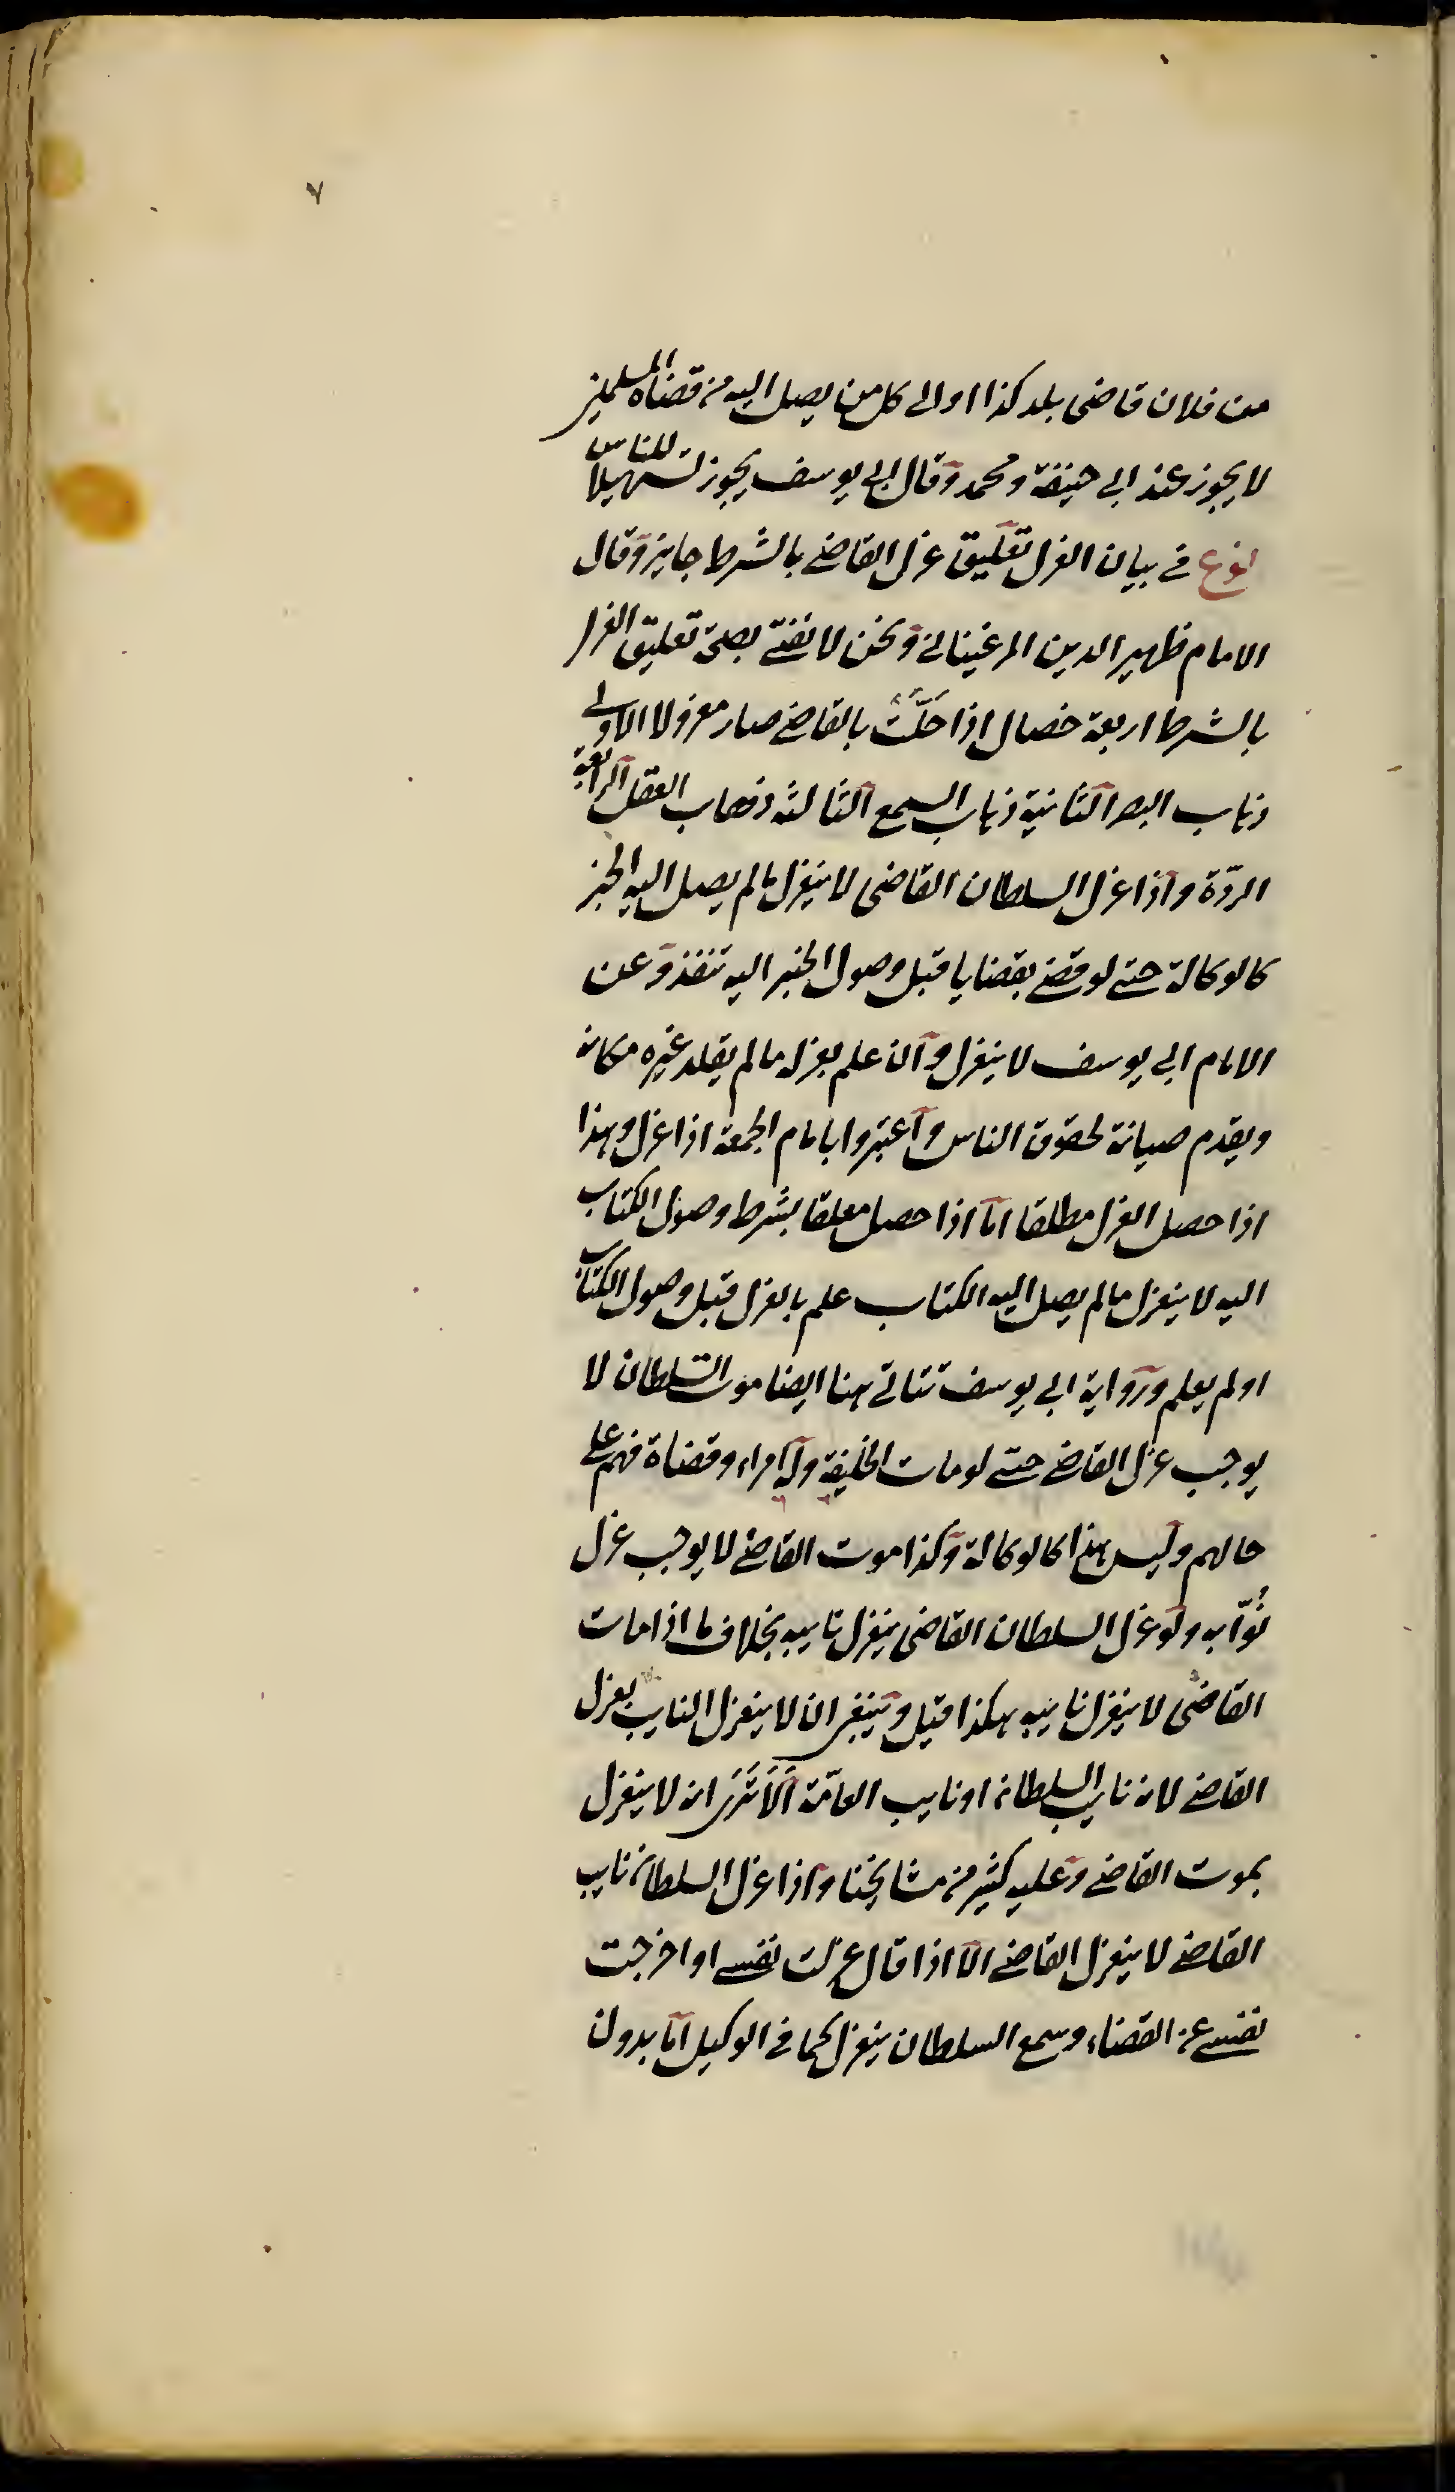 ٧
من فلان قاضى بلد كذا او الى كل من يصل اليه من قضاة المسلمين
لا يجوز عند ابي حنيفة ومحمد وقال ابي يوسف يجوز تسهيلا للناس
نوع في بيان العزل تعليق عزل القاضي بالشرط جايز وقال
الامام ظهير الدين المرغيناني ونحن لا نفتي بصحة تعليق العزل
بالشرط اربعة خصال اذا حَلَّتْ بالقاضي صار معزولا الاولى
ذهاب البصر الثانية ذهاب السمع الثالثة ذهاب العقل الرابعة
الردّة واذا عزل السلطان القاضى لا ينعزل ما لم يصل اليه الخبر
كالوكالة حتى لو قضي بقضايا قبل وصول الخبر اليه تنفذ وعن
الامام ابي يوسف لا ينعزل وان علم بعزله ما لم يقلد غيره مكانه
ويقدم صيانة لحقوق الناس واعتبروا بامام الجمعة اذا عزل وهذا
اذا حصل العزل مطلقا امّا اذا حصل معلقا بشرط وصول الكتاب
اليه لا ينعزل ما لم يصل اليه الكتاب علم بالعزل قبل وصول الكتاب
او لم يعلم ورواية ابي يوسف تتاتى هنا ايضا موت السلطان لا
يوجب عزل القاضي حتى لو مات الخليفة وله امراء وقضاة فهم على
حالهم وليس هذا كالوكالة وكذا موت القاضي لا يوجب عزل
نُوّابه ولو عزل السلطان القاضى ينعزل نايبه بخلاف ما اذا مات
القاضى لا ينعزل نايبه هكذا قيل وينبغي ان لا ينعزل النايب بعزل
القاضي لانه نايب السلطان او نايب العامّة اَلَا تَرَى انه لا ينعزل
بموت القاضي وعليه كثير من مشايخنا واذا عزل السلطان نايب
القاضي لا ينعزل القاضي الّا اذا قال عزلت نفسي او اخرجت
نفسي عن القضاء وسمع السلطان ينعزل كما في الوكيل امّا بدون